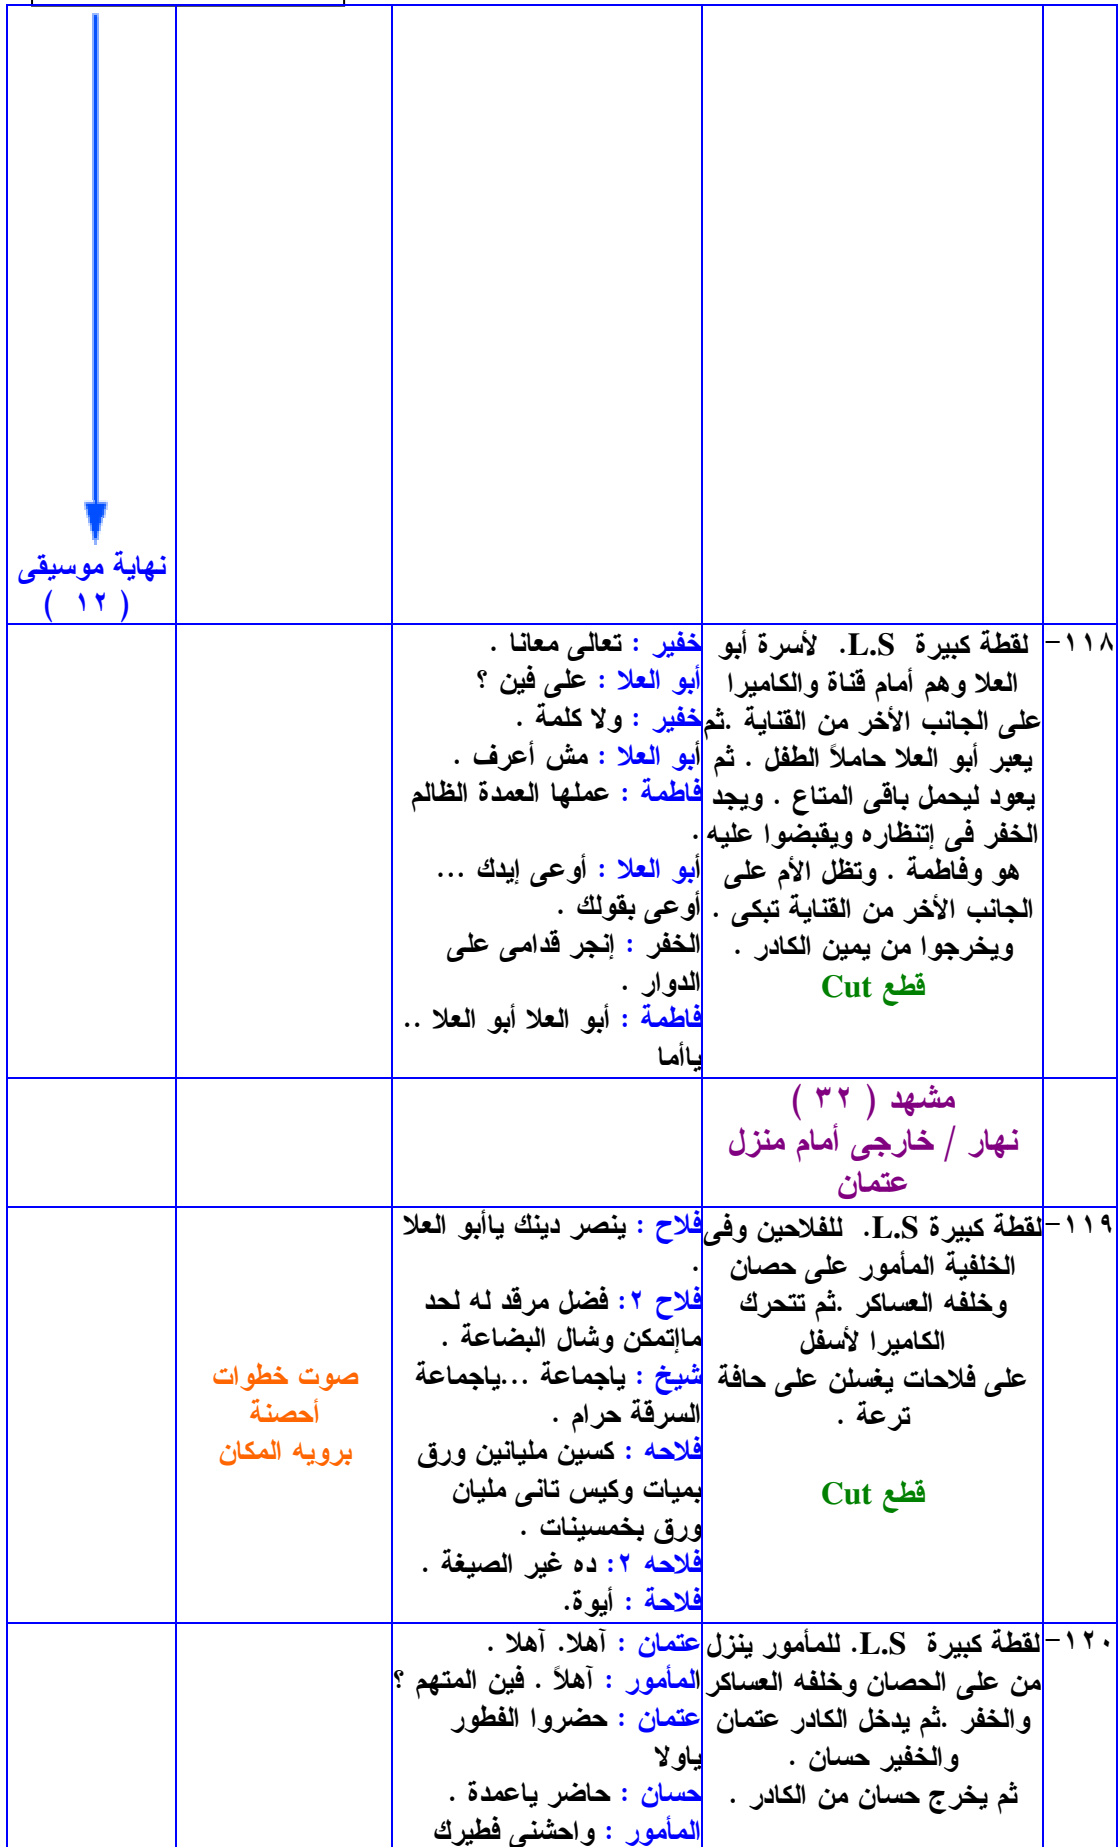 نهاية موسيقى
( ١٢ )
١١٨-
لقطة كبيرة L.S. لأسرة أبو
العلا وهم أمام قناة والكاميرا
على الجانب الأخر من القناية .ثم
يعبر أبو العلا حاملاً الطفل . ثم
يعود ليحمل باقى المتاع . ويجد
الخفر فى إنتظاره ويقبضوا عليه
هو وفاطمة . وتظل الأم على
الجانب الأخر من القناية تبكى .
ويخرجوا من يمين الكادر .
قطع Cut
خفير : تعالى معانا .
أبو العلا : على فين ؟
خفير : ولا كلمة .
أبو العلا : مش أعرف .
فاطمة : عملها العمدة الظالم
.
أبو العلا : أوعى إيدك ...
أوعى بقولك .
الخفر : إنجر قدامى على
الدوار .
فاطمة : أبو العلا أبو العلا ..
ياأما
مشهد ( ٣٢ )
نهار / خارجى أمام منزل
عتمان
١١٩-
لقطة كبيرة L.S. للفلاحين وفى
الخلفية المأمور على حصان
وخلفه العساكر .ثم تتحرك
الكاميرا لأسفل
على فلاحات يغسلن على حافة
ترعة .
قطع Cut
فلاح : ينصر دينك ياأبو العلا
.
فلاح ٢: فضل مرقد له لحد
ماإتمكن وشال البضاعة .
شيخ : ياجماعة ...ياجماعة
السرقة حرام .
فلاحه : كسين مليانين ورق
بميات وكيس تانى مليان
ورق بخمسينات .
فلاحه ٢: ده غير الصيغة .
فلاحة : أيوة.
صوت خطوات
أحصنة
برويه المكان
١٢٠-
لقطة كبيرة L.S. للمأمور ينزل
من على الحصان وخلفه العساكر
والخفر .ثم يدخل الكادر عتمان
والخفير حسان .
ثم يخرج حسان من الكادر .
عتمان : آهلا. آهلا .
المأمور : آهلاً . فين المتهم ؟
عتمان : حضروا الفطور
ياولا
حسان : حاضر ياعمدة .
المأمور : واحشنى فطيرك